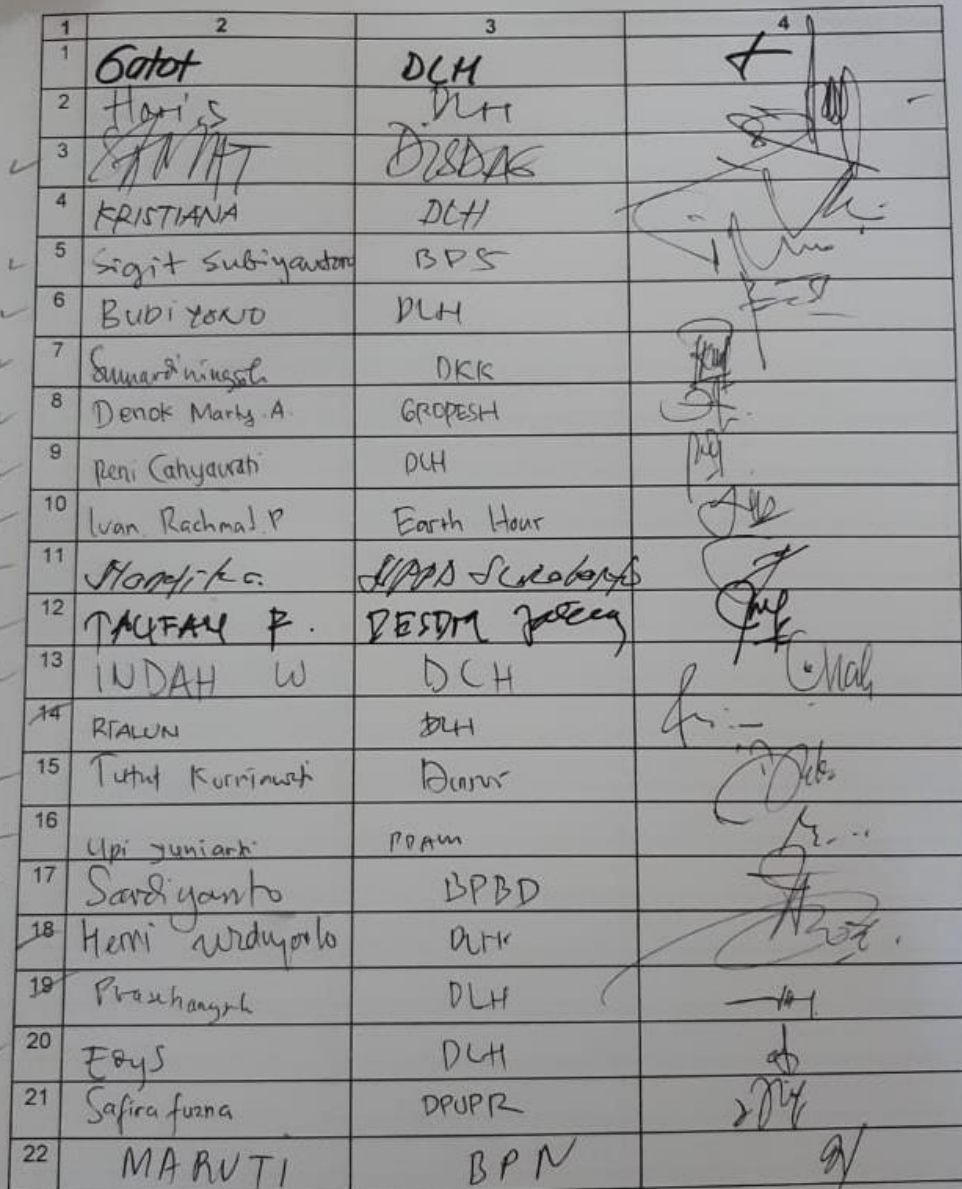 1 2 3 4
1 Gatot DLH
2 Hari.S DLH
3 DISDAG
4 KRISTIANA DLH
5 Sigit Subiyantoro BPS
6 BUDIYONO DLH
7 DKK
8 Denok Marty.A. GROPESH
9 Reni Cahyawati DLH
10 Ivan Rachmad.P Earth Hour
11
12 TAUFAN P. DESDM Jateng
13 INDAH W DLH
14 RIALUN DLH
15 Tutut Kurniawati
16 Upi yuniarti PDAM
17 Sardiyanto BPBD
18 Herri DLHK
19 DLH
20 DLH
21 Safira fuzna DPUPR
22 MARUTI BPN